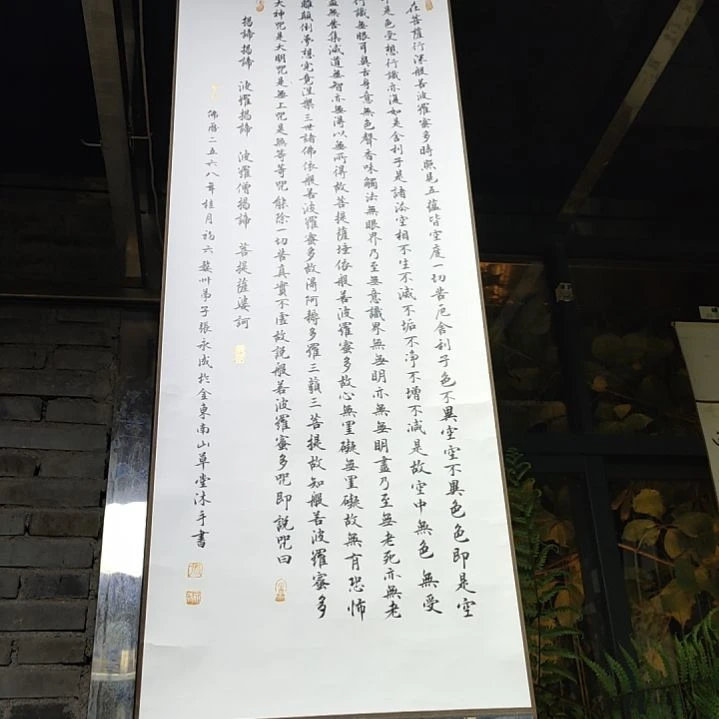 在菩薩行深般若波羅蜜多時照見五蘊皆空度一切苦厄舍利子色不異空空不異色色即是空
是色受想行識亦復如是舍利子是諸法空相不生不滅不垢不淨不增不減是故空中無色無受
行識無眼耳鼻舌身意無色聲香味觸法無眼界乃至無意識界無無明亦無無明盡乃至無老死亦無老
盡無苦集滅道無智亦無得以無所得故菩提薩埵依般若波羅蜜多故心無罣礙無罣礙故無有恐怖
離顛倒夢想究竟涅槃三世諸佛依般若波羅蜜多故得阿耨多羅三藐三菩提故知般若波羅蜜多
大神咒是大明咒是無上咒是無等等咒能除一切苦真實不虛故說般若波羅蜜多咒即說咒曰
揭諦揭諦 波羅揭諦 波羅僧揭諦 菩提薩婆訶
佛曆二五六八年桂月初六婺州弟子張永成於金東南山草堂沐手書